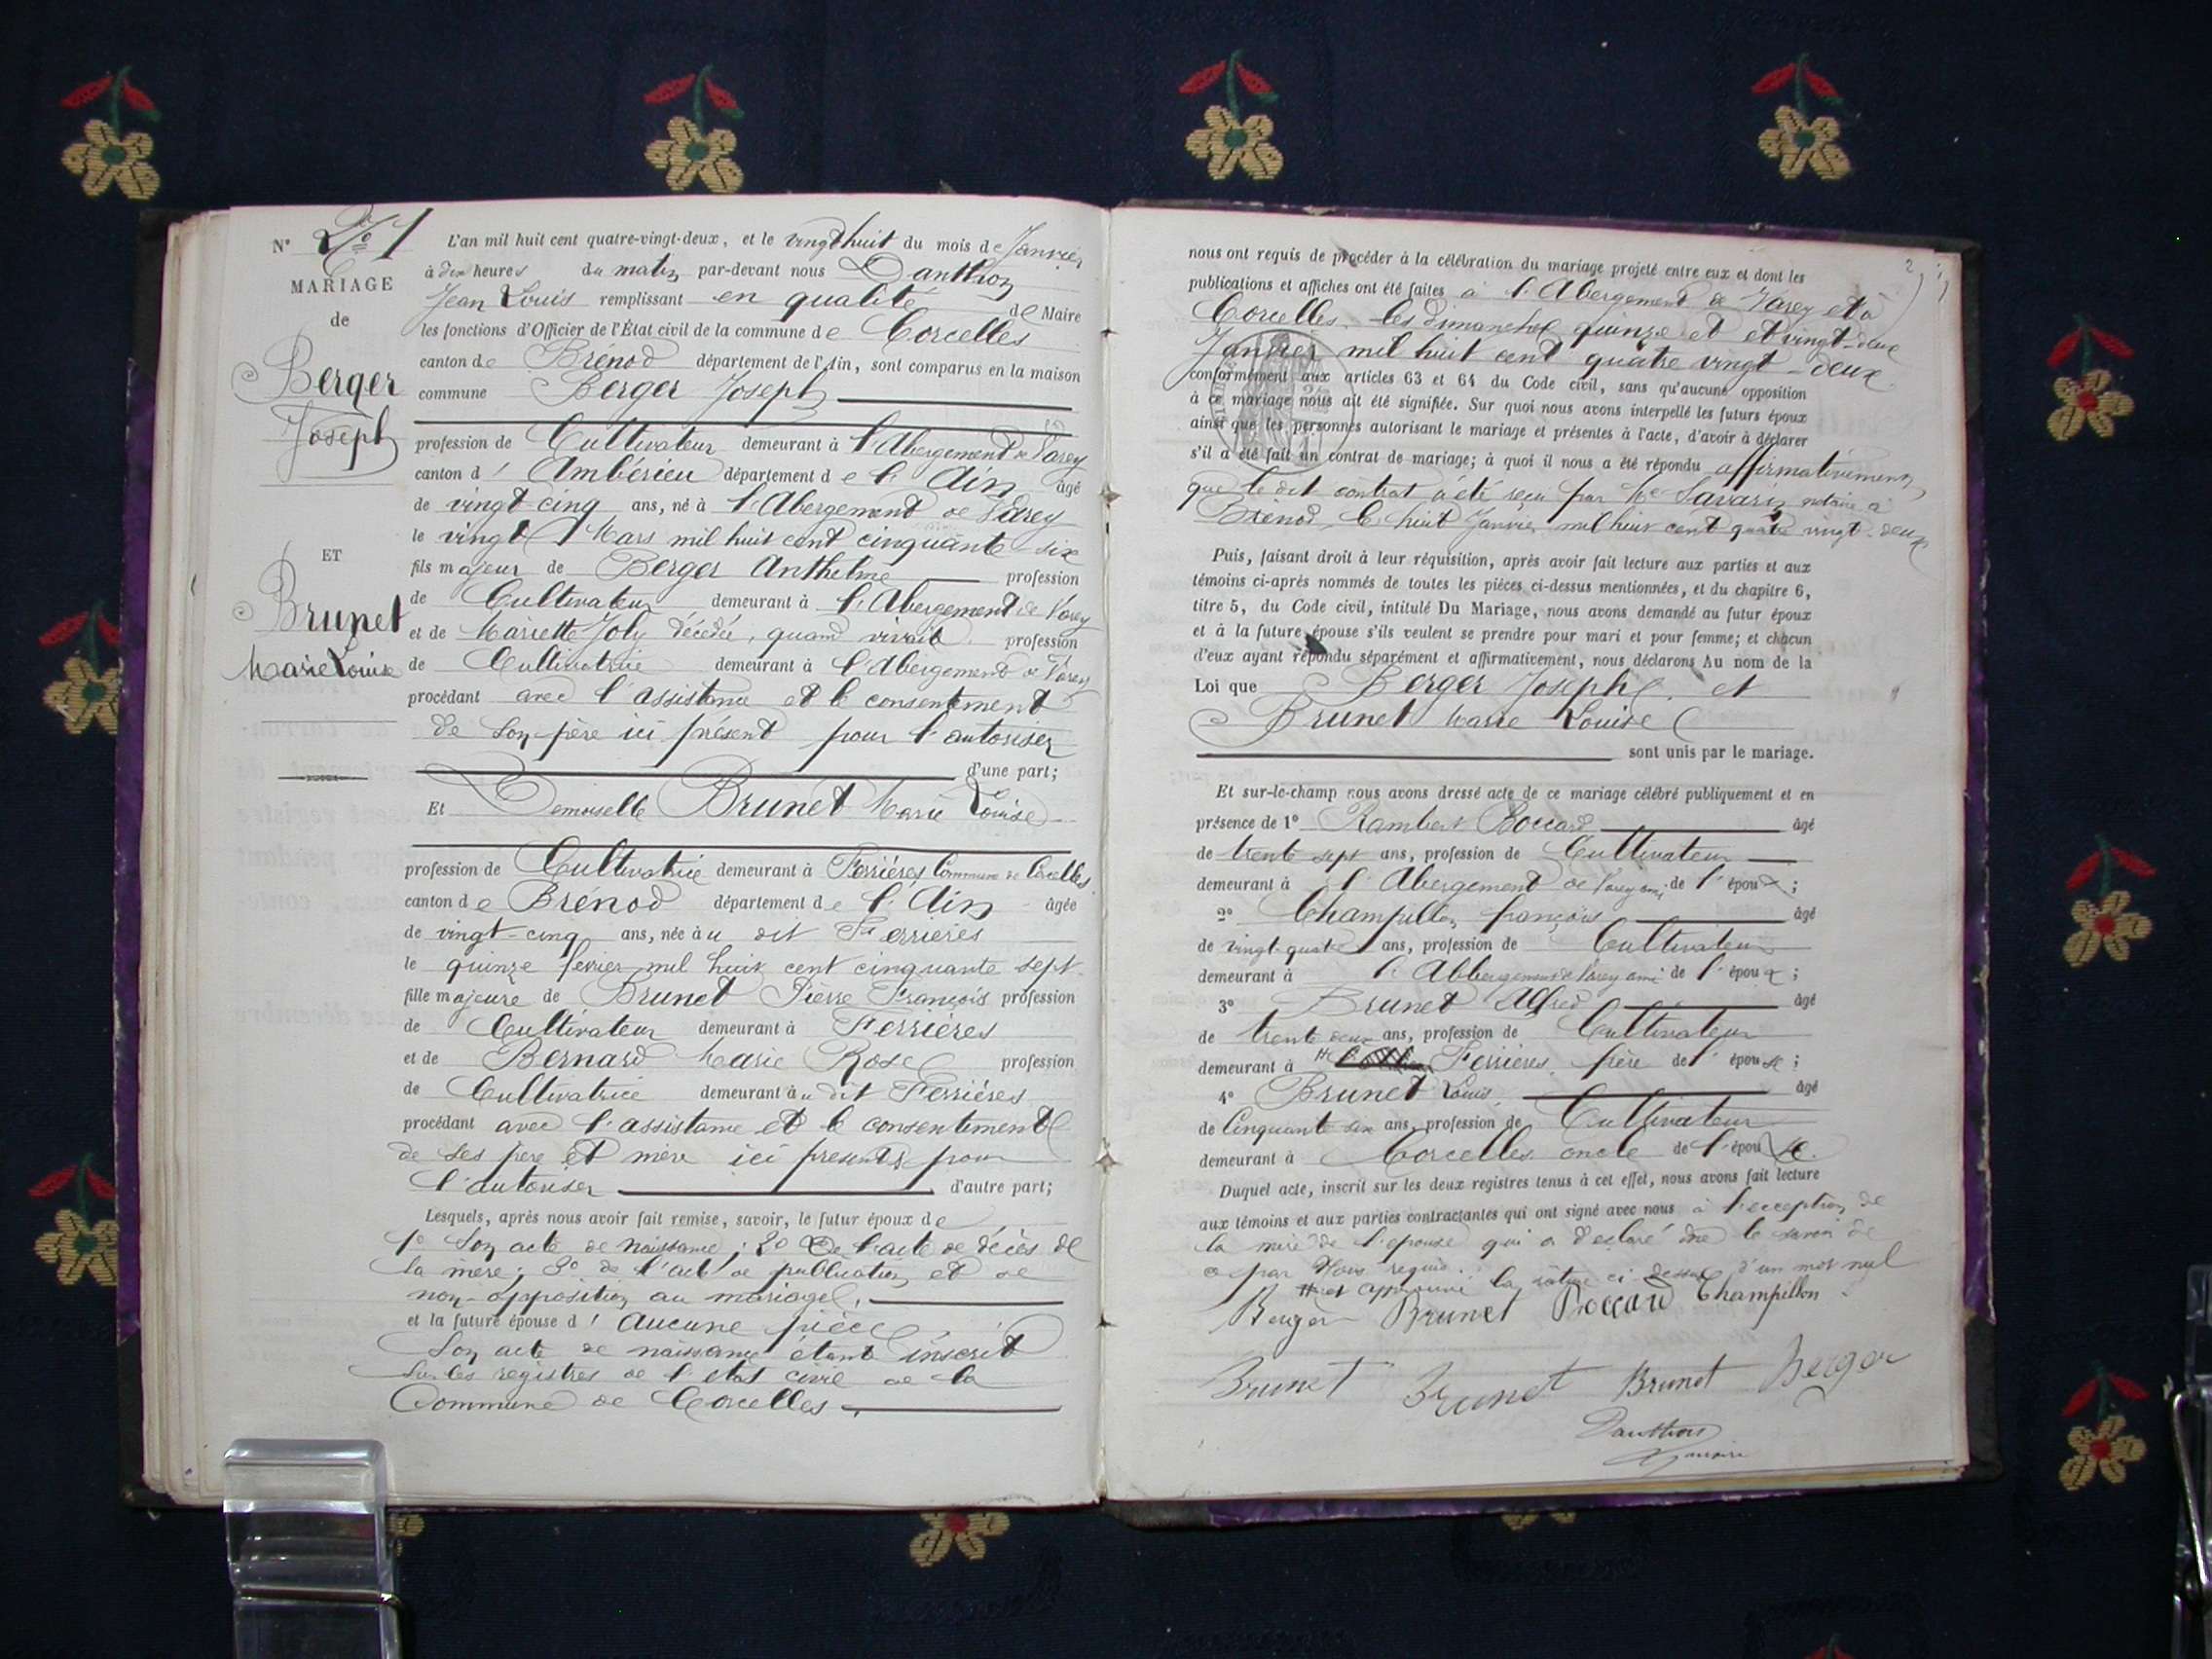 N° 1
MARIAGE
de
Berger
Joseph
ET
Brunet
Marie Louise
L'an mil huit cent quatre-vingt-deux, et le vingt huit du mois de Janvier
à dix heures du matin par-devant nous Danthon
Jean Louis remplissant en qualité de Maire
les fonctions d'Officier de l'État civil de la commune de Corcelles
canton de Brénod département de l'Ain, sont comparus en la maison
commune Berger Joseph
profession de Cultivateur demeurant à l'Abergement de Varey
canton d' Ambérieu département de l'Ain âgé
de vingt-cinq ans, né à l'Abergement de Varey
le vingt Mars mil huit cent cinquante six
fils majeur de Berger Anthelme profession
de Cultivateur demeurant à l'Abergement de Varey
et de Mariette Joly décédée, quand vivait profession
de Cultivatrice demeurant à l'Abergement de Varey
procédant avec l'assistance et le consentement
de son père ici présent pour l'autoriser
d'une part;
Et Demoiselle Brunet Marie Louise
profession de Cultivatrice demeurant à Ferrières Commune de Corcelles
canton de Brénod département de l'Ain âgée
de vingt-cinq ans, née au dit Ferrières
le quinze fevrier mil huit cent cinquante sept
fille majeure de Brunet Pierre François profession
de Cultivateur demeurant à Ferrières
et de Bernard Marie Rose profession
de Cultivatrice demeurant au dit Ferrières
procédant avec l'assistance et le consentement
de ses père et mère ici presents pour
l'autoriser d'autre part;
Lesquels, après nous avoir fait remise, savoir, le futur époux de
1° Son acte de naissance; 2° De l'acte de décès de
la mère; 3° de l'acte de publication et de
non-opposition au mariage.
et la future épouse d' aucune pièce
Son acte de naissance étant inscrit
sur les registres de l'état civil de la
Commune de Corcelles.
2
nous ont requis de procéder à la célébration du mariage projeté entre eux et dont les
publications et affiches ont été faites à l'Abergement de Varey et à
Corcelles les dimanches quinze et et vingt-deux
Janvier mil huit cent quatre vingt-deux
conformément aux articles 63 et 64 du Code civil, sans qu'aucune opposition
à ce mariage nous ait été signifiée. Sur quoi nous avons interpellé les futurs époux
ainsi que les personnes autorisant le mariage et présentes à l'acte, d'avoir à déclarer
s'il a été fait un contrat de mariage; à quoi il nous a été répondu affirmativement
que le dit contrat a été reçu par Me Savarin notaire à
Brenod, le huit Janvier mil huit cent quatre vingt-deux
Puis, faisant droit à leur réquisition, après avoir fait lecture aux parties et aux
témoins ci-après nommés de toutes les pièces ci-dessus mentionnées, et du chapitre 6,
titre 5, du Code civil, intitulé Du Mariage, nous avons demandé au futur époux
et à la future épouse s'ils veulent se prendre pour mari et pour femme; et chacun
d'eux ayant répondu séparément et affirmativement, nous déclarons Au nom de la
Loi que Berger Joseph et
Brunet Marie Louise
sont unis par le mariage.
Et sur-le-champ nous avons dressé acte de ce mariage célébré publiquement et en
présence de 1° Rambert Boccard âgé
de trente sept ans, profession de Cultivateur
demeurant à l'Abergement de Varey ami de l'époux;
2° Champillon françois âgé
de vingt-quatre ans, profession de Cultivateur
demeurant à l'Abbergement de Varey ami de l'époux;
3° Brunet Alfred âgé
de trente deux ans, profession de Cultivateur
demeurant à Ferrières, frère de l'épouse;
4° Brunet Louis, âgé
de Cinquante six ans, profession de Cultivateur
demeurant à Corcelles oncle de l'épouse.
Duquel acte, inscrit sur les deux registres tenus à cet effet, nous avons fait lecture
aux témoins et aux parties contractantes qui ont signé avec nous à l'exception de
la mère de l'epouse qui a déclaré ne le savoir de
ce par Nous requis.
et approuvé la rature ci dessus d'un mot nul
Berger Brunet Boccard Champillon
Brunet Brunet Brunet Berger
Danthon
maire